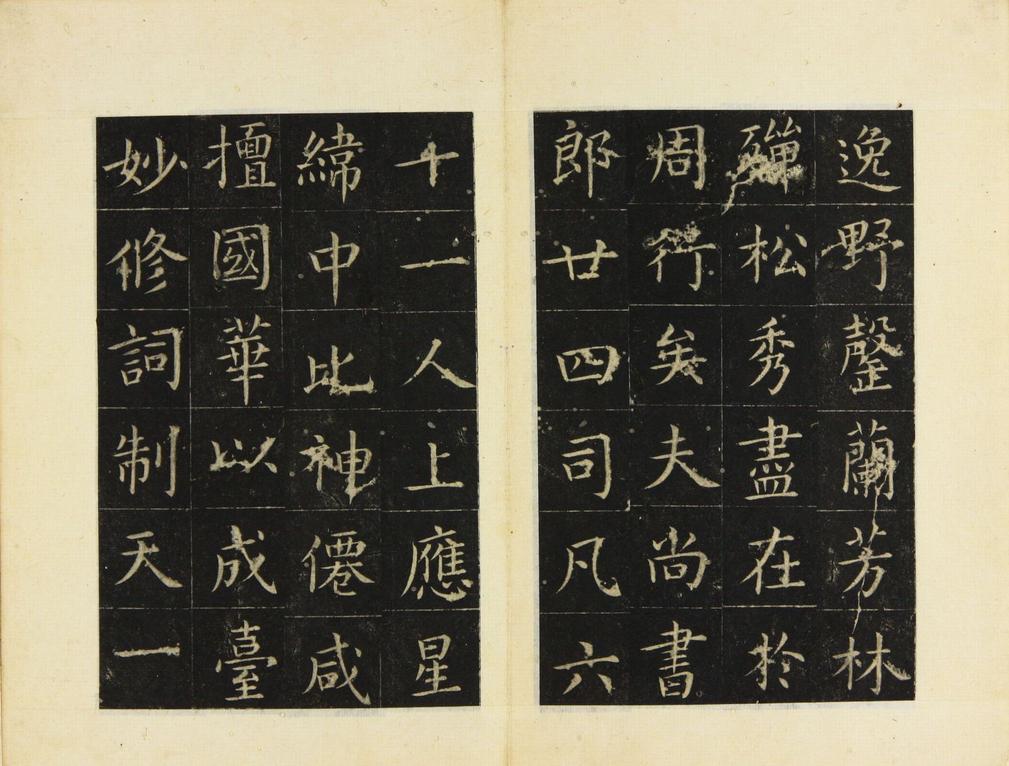 逸野罄蘭芳林
殫松秀盡在於
周行矣夫尚書
郎廿四司凡六
十一人上應星
緯中比神僊咸
擅國華以成臺
妙修詞制天一